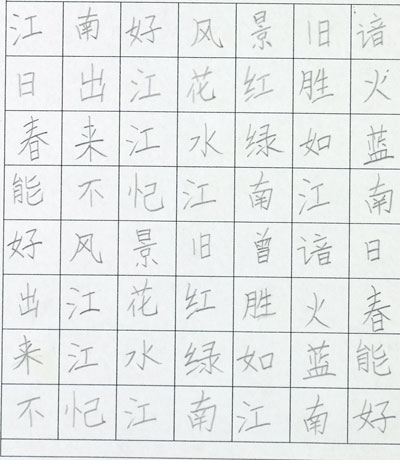 江南好风景旧谙
日出江花红胜火
春来江水绿如蓝
能不忆江南江南
好风景旧曾谙日
出江花红胜火春
来江水绿如蓝能
不忆江南江南好